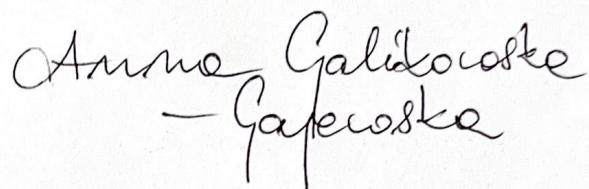 Anna Galikowska
- Gajewska